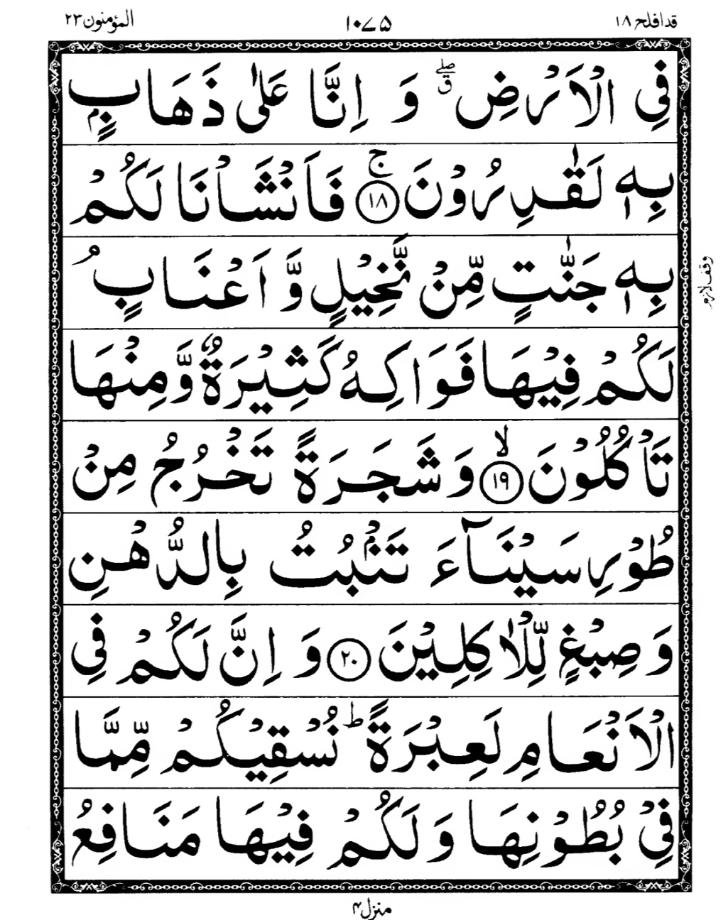 قد افلح ۱۸
۱۰۷۵
المؤمنون ۲۳
فِی الْاَرْضِ ۖۗ وَ اِنَّا عَلٰی ذَهَابٍۭ
بِهٖ لَقٰدِرُوْنَ ۚ‏﴿۱۸﴾ فَاَنْشَاْنَا لَكُمْ
بِهٖ جَنّٰتٍ مِّنْ نَّخِیْلٍ وَّ اَعْنَابٍ ۘ
وقف لازم
لَكُمْ فِیْهَا فَوَاكِهُ كَثِیْرَةٌ وَّمِنْهَا
تَاْكُلُوْنَ ۙ‏﴿۱۹﴾ وَشَجَرَةً تَخْرُجُ مِنْ
طُوْرِ سَیْنَآءَ تَنْۢبُتُ بِالدُّهْنِ
وَصِبْغٍ لِّلْاٰكِلِیْنَ ﴿۲۰﴾ وَ اِنَّ لَكُمْ فِی
الْاَنْعَامِ لَعِبْرَةً ؕ نُسْقِیْكُمْ مِّمَّا
فِیْ بُطُوْنِهَا وَلَكُمْ فِیْهَا مَنَافِعُ
منزل ۴